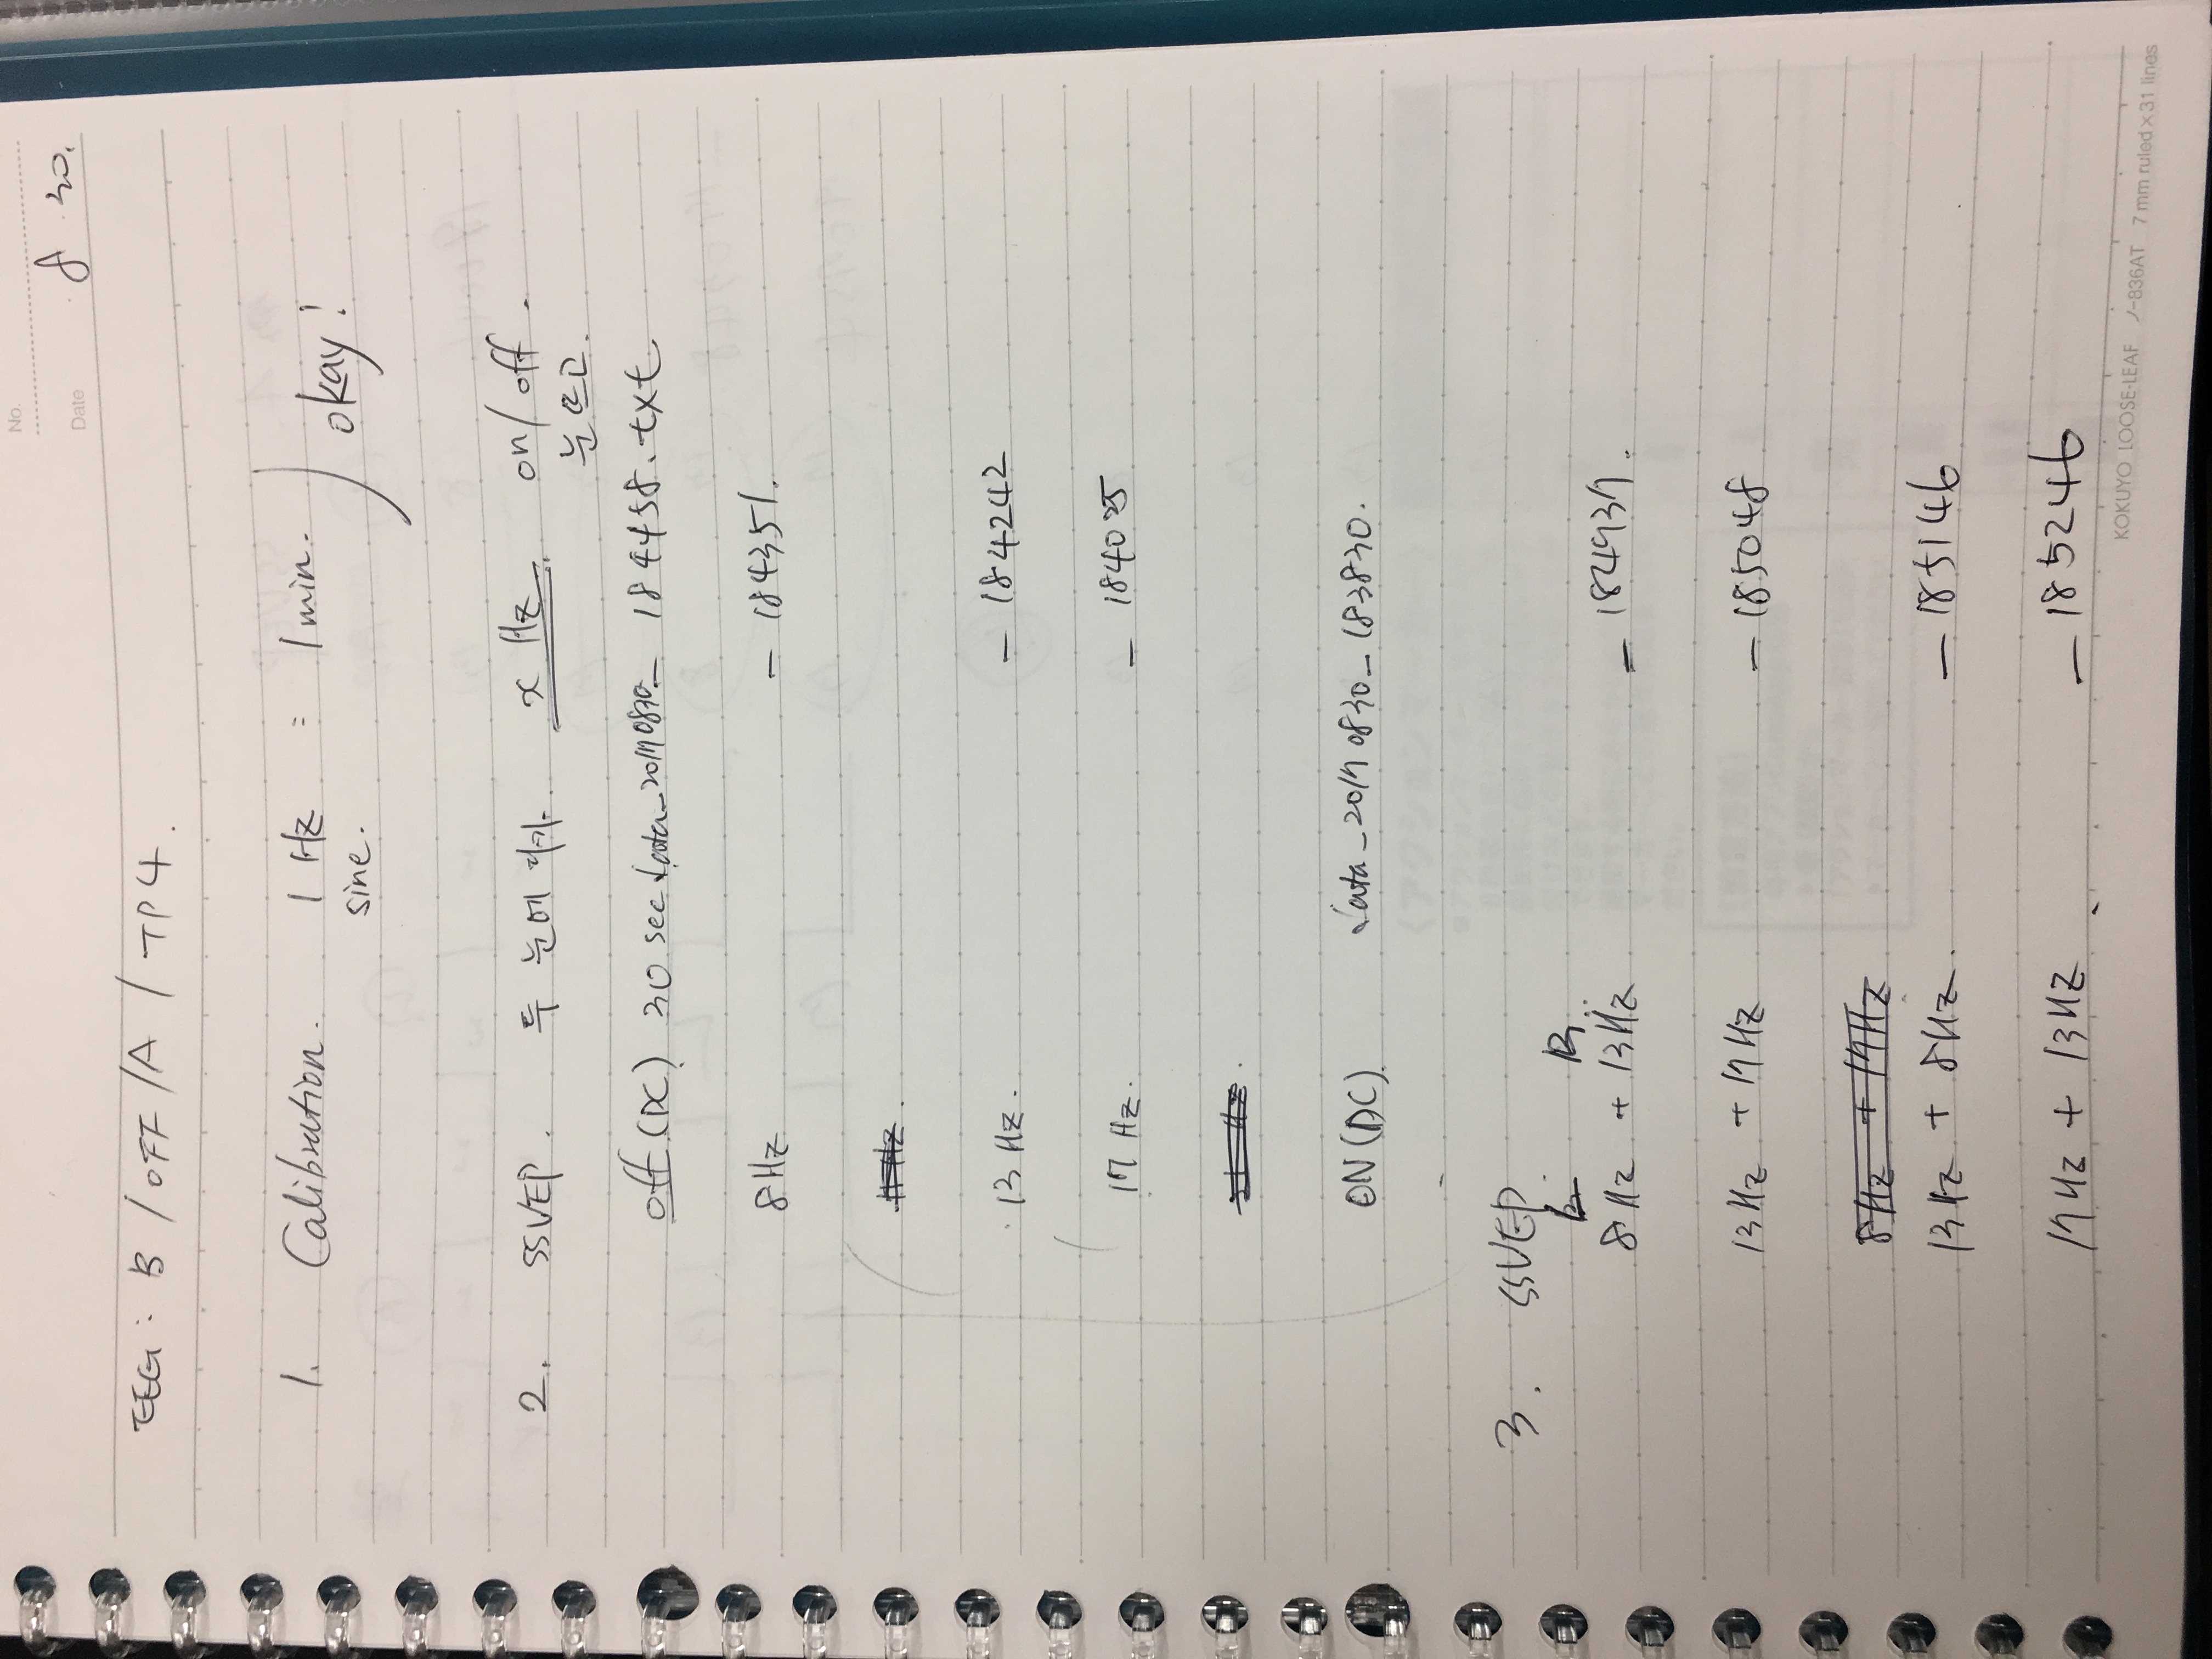 No.
Date 8 . 30.
EEG : B / OFF / A / TP4.
1. Calibration. 1 Hz : 1 min. okay!
sine.
2. SSVEP. 두 눈에 다가. x Hz. on/off.
눈 뜨고.
off (DC) 30 sec data_20170830_ 184458.txt
8 Hz - 184351.
13 Hz. - 184242
17 Hz. - 184025
ON (DC) data_20170830_183830.
3. SSVEP.
L R
8 Hz + 13 Hz - 184937.
13 Hz + 17 Hz - 185048
8 Hz + 17 Hz
13 Hz + 8 Hz. - 185146
17 Hz + 13 Hz - 185246
KOKUYO LOOSE-LEAF ノ-836AT 7 mm ruled × 31 lines